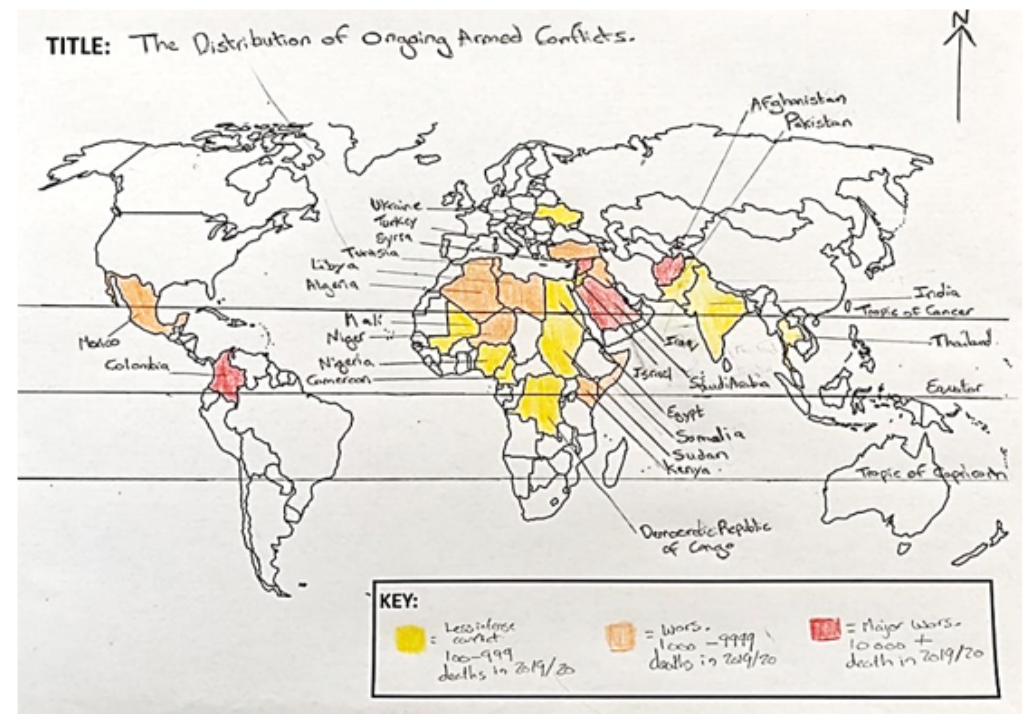 TITLE: The Distribution of Ongoing Armed Conflicts.
N
Afghanistan
Pakistan
Ukraine
Turkey
Syria
Tunasia
Libya
Algeria
Mali
Niger
Nigeria
Cameroon
Mexico
Colombia
India
Tropic of Cancer
Thailand
Iraq
Israel
Saudi Arabia
Equator
Egypt
Somalia
Sudan
Kenya
Tropic of Capricorn
Democratic Republic
of Congo
KEY:
= Less intense
conflict
100-999
deaths in 2019/20
= Wars.
1000 - 9999
deaths in 2019/20
= Major Wars.
10 000 +
death in 2019/20